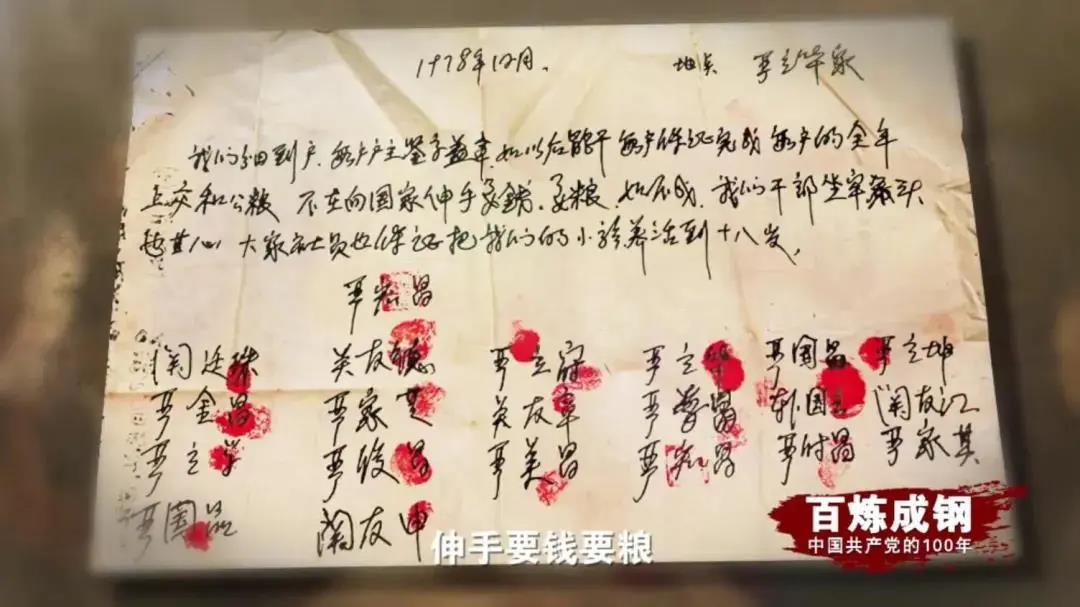 1978年12月. 地点 严立华家
我们分田到户,每户户主签字盖章,如以后能干,每户保证完成每户的全年
上交和公粮 不在向国家伸手要钱,要粮,如不成,我们干部坐牢杀头
也甘心,大家社员也保证把我们的小孩养活到十八岁,
严宏昌
関廷珠 关友德 严立富 严立华 严国昌 严立坤
严金昌 严家芝 关友章 严学昌 韩国云 関友江
严立学 严俊昌 严美昌 严宏昌 严付昌 严家其
严国品 関友申
伸手要钱要粮
百炼成钢
中国共产党的100年